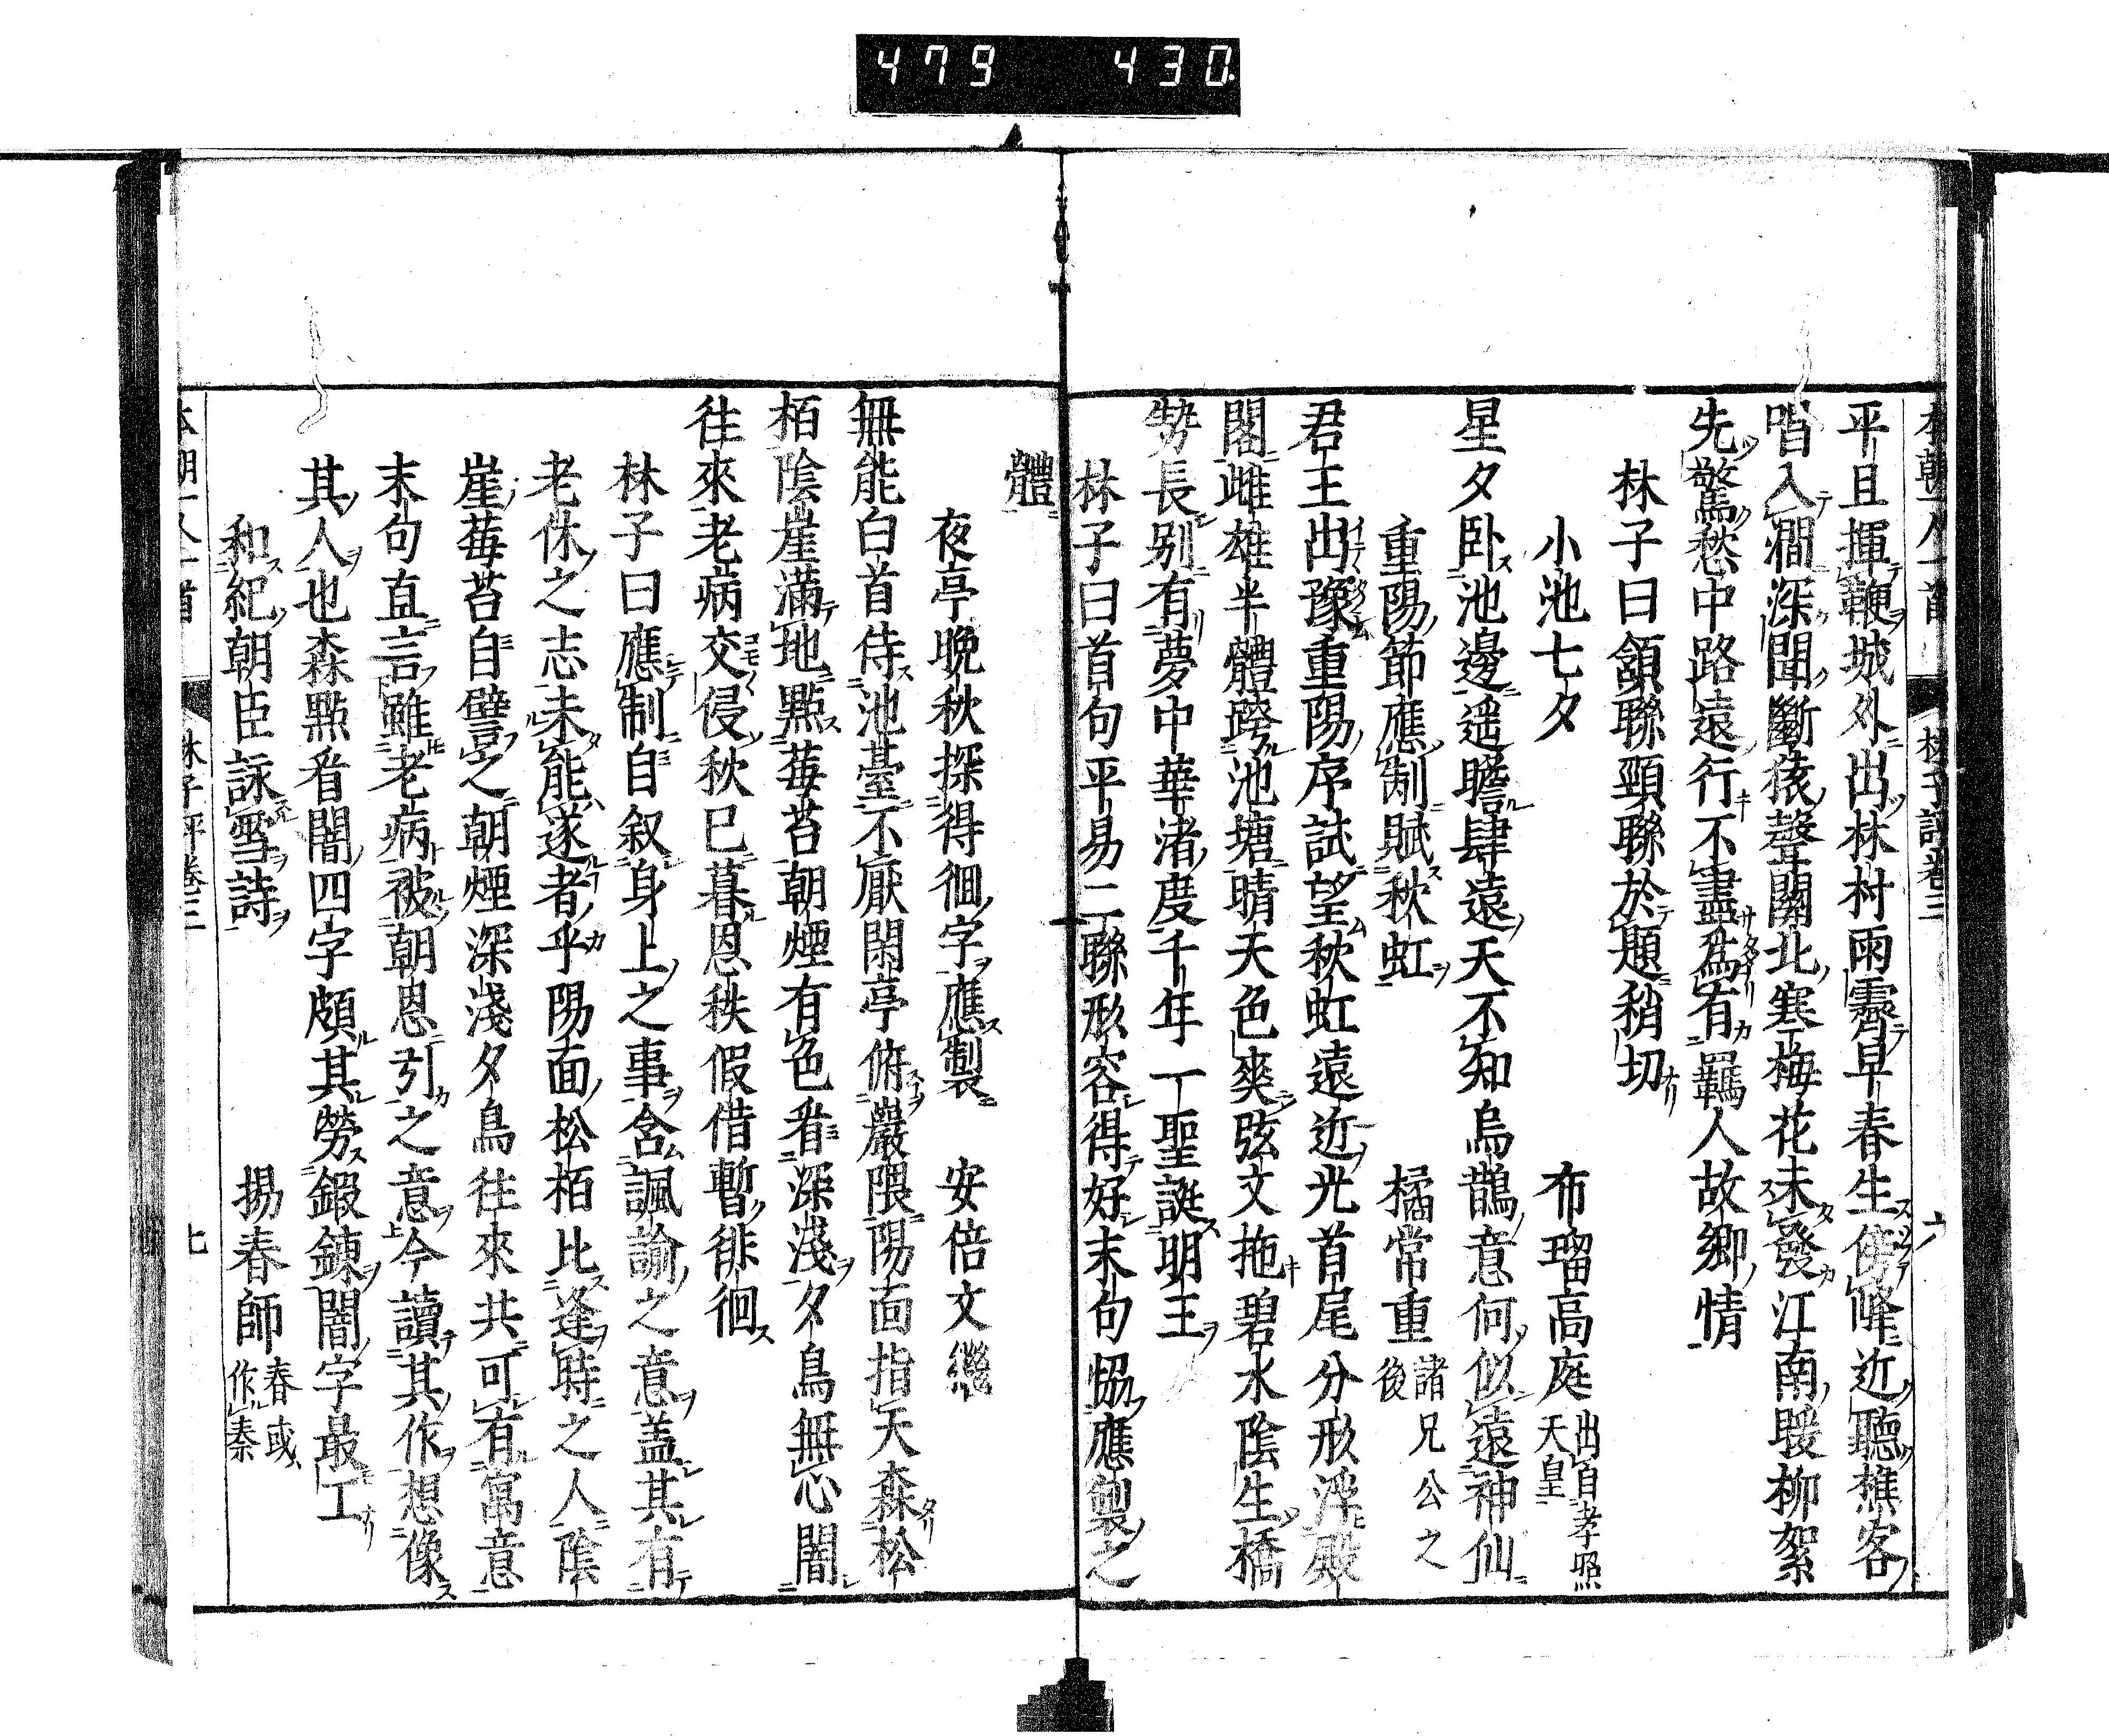 479 430
本朝一人一首 林子評卷三 六
平旦揮鞭城外出林村雨霽早春生傍峰近聽樵客
唱入澗深聞斷猿聲關北寒梅花未發江南暖柳絮
先驚愁中路遠行不盡爲有羈人故鄉情
林子曰頷聯頸聯於題稍切
小池七夕 布瑠高庭 出自孝照天皇
星夕卧池邊遥瞻肆遠天不知烏鵲意何似遠神仙
重陽節應制賦秋虹 橘常重 諸兄公之後
君王出豫重陽序試望秋虹遠近光首尾分形浮殿
閣雌雄半體跨池塘晴天色爽弦文拖碧水陰生橋
勢長别有夢中華渚度千年一聖誕明王
林子曰首句平易二聯形容得好末句協應製之
體
夜亭晚秋探得徊字應製 安倍文繼
無能白首侍池臺不厭閑亭俯巖隈陽面指天森松
栢陰崖滿地點莓苔朝煙有色看深淺夕鳥無心闇
徃來老病交侵秋已暮恩秩假借暫徘徊
林子曰應制自叙身上之事含諷諭之意盖其有
老休之志未能遂者乎陽面松栢比逢時之人陰
崖莓苔自譬之朝煙深淺夕鳥徃來共可有寓意
末句直言雖老病被朝恩引之意今讀其作想像
其人也森點看闇四字頗其勞鍜錬闇字最工
和紀朝臣詠雪詩 揚春師 春或作秦
本朝一人一首 林子評卷三 七